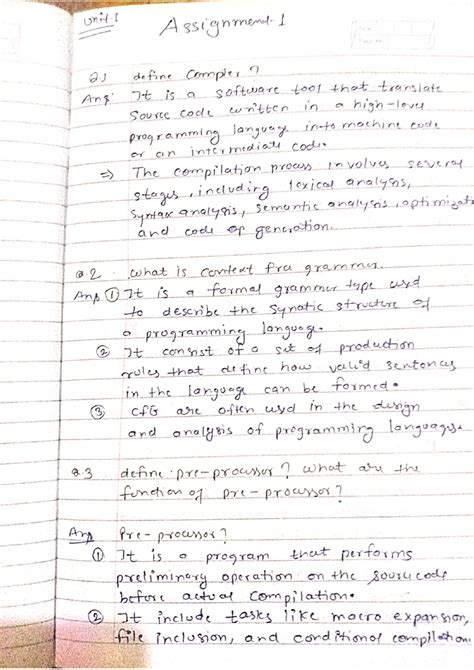 Unit-1
Assignment-1
Q.1 define Compler ?
Ans: It is a software tool that translate
source code written in a high-level
programming language into machine code
or an intermediate code.
⇒ The compilation process involves several
stages, including lexical analysis,
syntax analysis, semantic analysis, optimizati
and code of generation.
Q.2 what is context free grammer.
Ans ① It is a formal grammer type used
to describe the synatic structure of
a programming language.
② It consist of a set of production
rules that define how valid sentences
in the language can be formed.
③ CFG are often used in the design
and analysis of programming languages.
Q.3 define pre-processor? what are the
function of pre-processor?
Ans Pre-processor?
① It is a program that performs
preliminary operation on the source code
before actual compilation.
② It include tasks like macro expansion,
file inclusion, and conditional compilation.